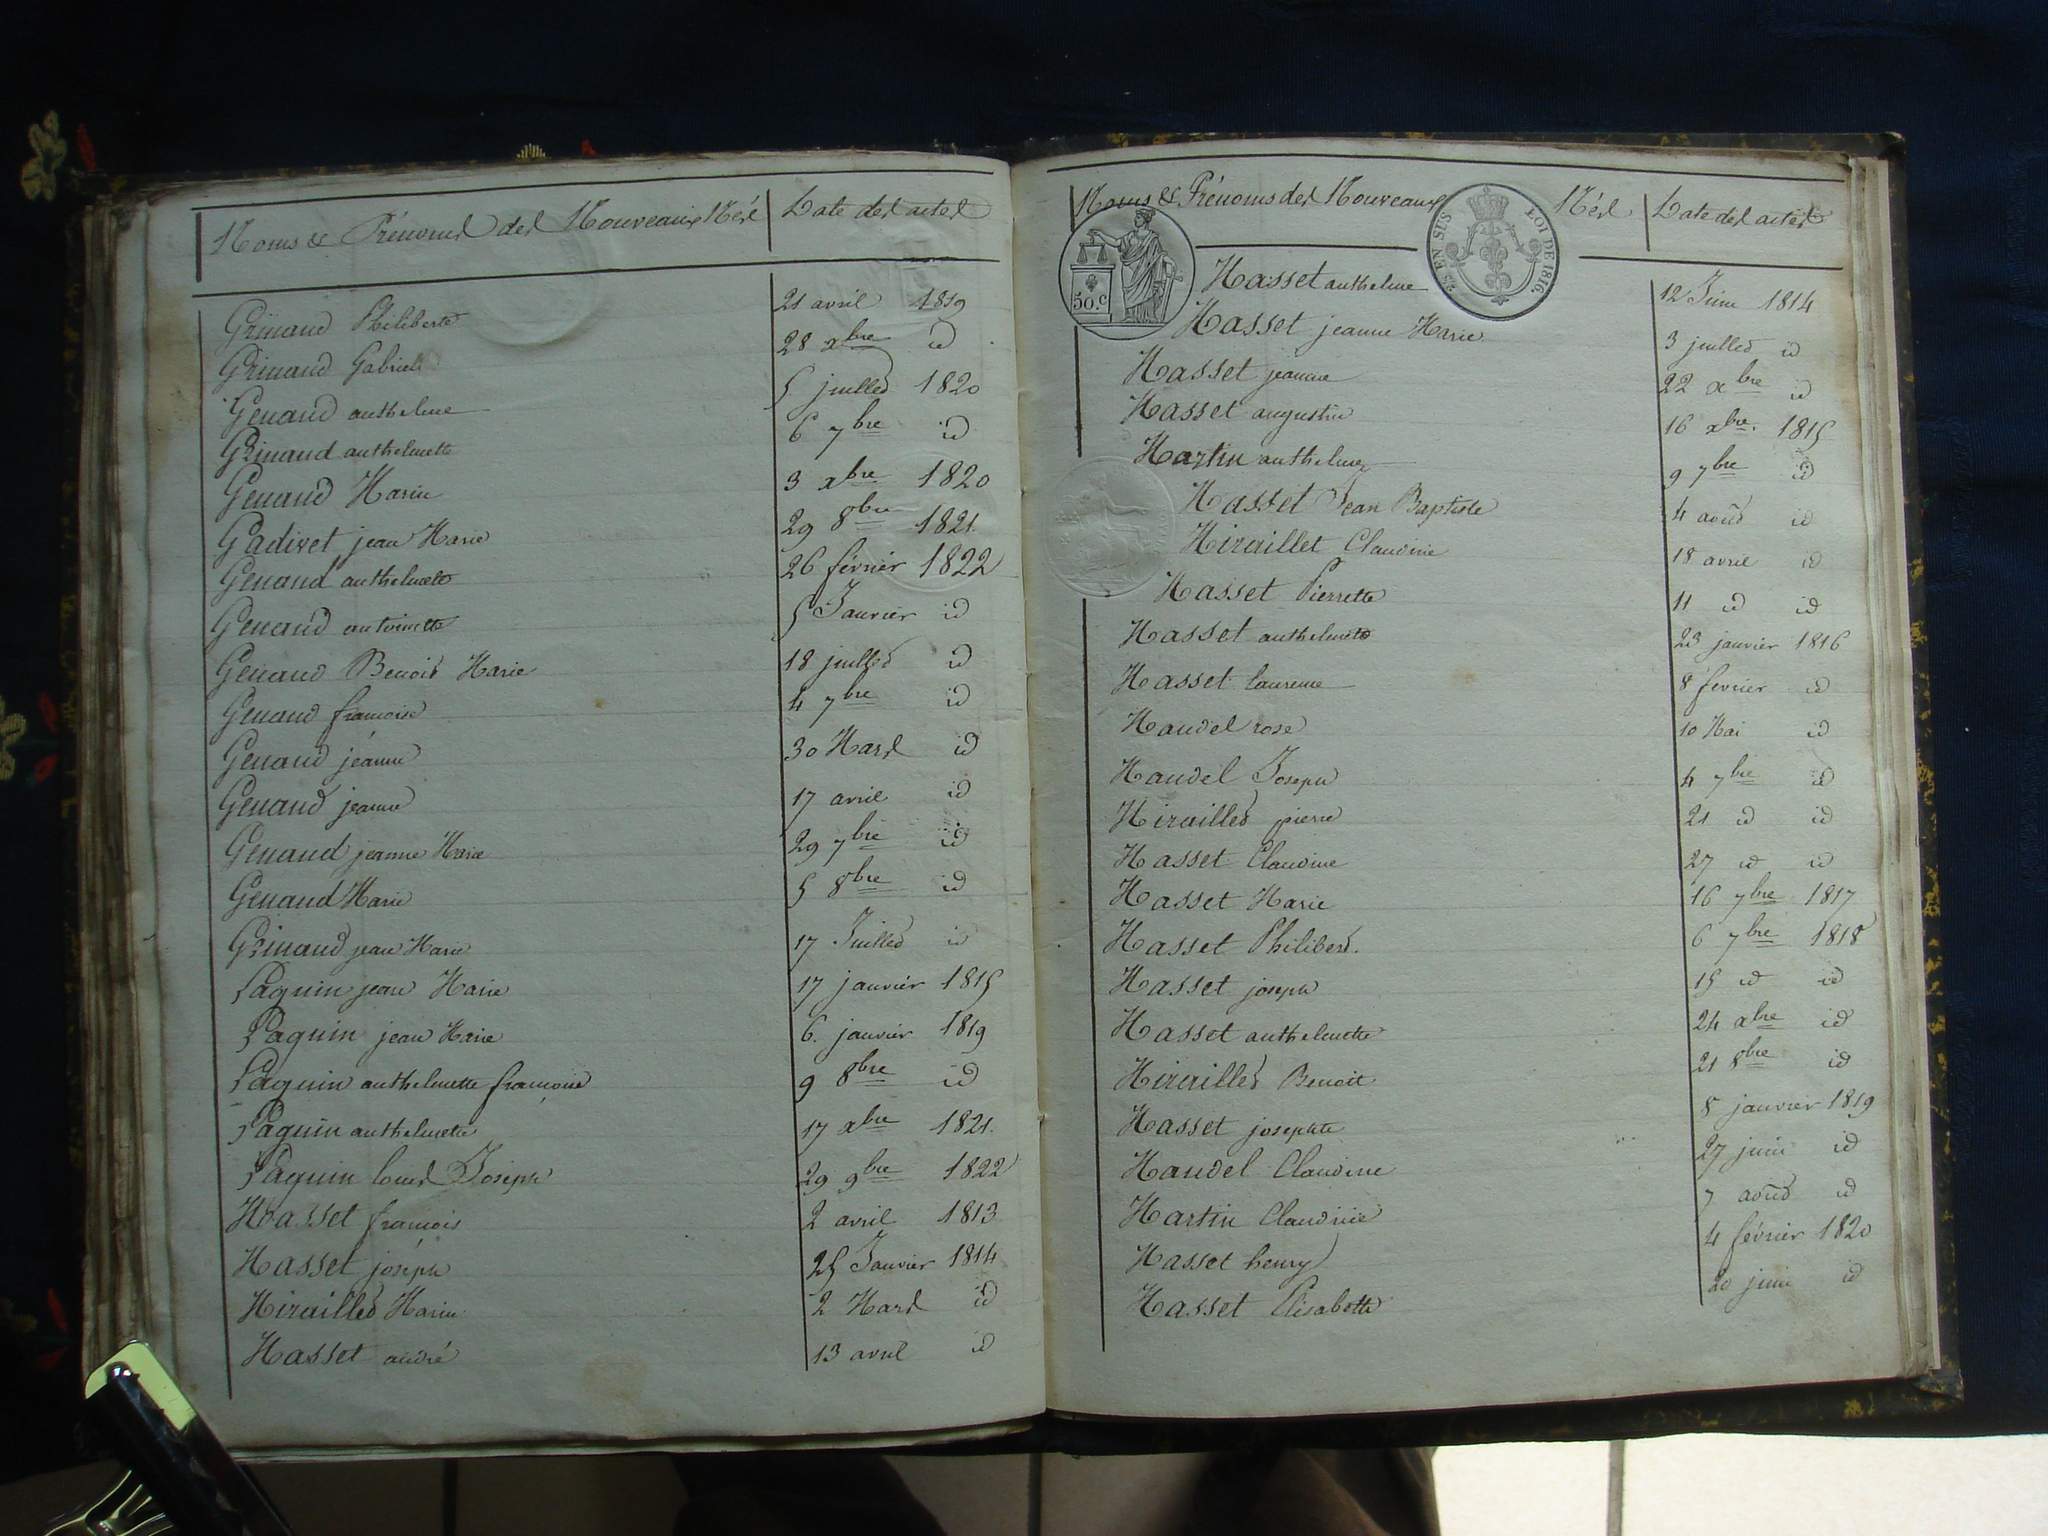 Noms & Prénoms des Nouveaux Nés Date des actes
Grinand Philiberte 21 avril 1819
Grinand Gabriel 28 xbre id
Genand anthelme 5 juillet 1820
Grinand anthelmette 6 7bre id
Genand Marie 3 xbre 1820
Gadivet jean Marie 29 8bre 1821
Genand anthelmette 26 février 1822
Genand antoinette 5 Janvier id
Genand Benoit Marie 18 juillet id
Genand francoise 4 7bre id
Genand jeanne 30 Mars id
Genand jeanne 17 avril id
Genand jeanne Marie 29 7bre id
Genand Marie 5 8bre id
Grinand jean Marie 17 Juillet id
Laguin jean Marie 17 janvier 1815
Laguin jean Marie 6. janvier 1819
Laguin anthelmette françoise 9 8bre id
Laguin anthelmette 17 xbre 1821.
Laguin louis Joseph 29 9bre 1822
Masset francois 2 avril 1813
Masset joseph 25 Janvier 1814
Miraillet Marie 2 Mars id
Masset andré 13 avril id
Noms & Prénoms des Nouveaux Nés Date des actes
50.c
EN SUS LOI DE 1816.
Masset anthelme 12 Juin 1814
Masset jeanne Marie 3 juillet id
Masset jeanne 22 xbre id
Masset augustin 16 xbre. 1815
Martin anthelme 9 7bre id
Masset Jean Baptiste 4 août id
Miraillet Claudine 18 avril id
Masset Pierrette 11 id id
Masset anthelmette 23 janvier 1816
Masset laurence 8 février id
Maudel rose 10 Mai id
Maudel Joseph 4 7bre id
Miraillet pierre 21 id id
Masset Claudine 27 id id
Masset Marie 16 7bre 1817
Masset Philibert. 6 7bre 1818
Masset joseph 15 id id
Masset anthelmette 24 xbre id
Miraillet Benoit 21 8bre id
Masset josephte 8 janvier 1819
Maudel Claudine 27 juin id
Martin Claudine 7 août id
Masset henry 4 février 1820
Masset Elisabette 20 juin id